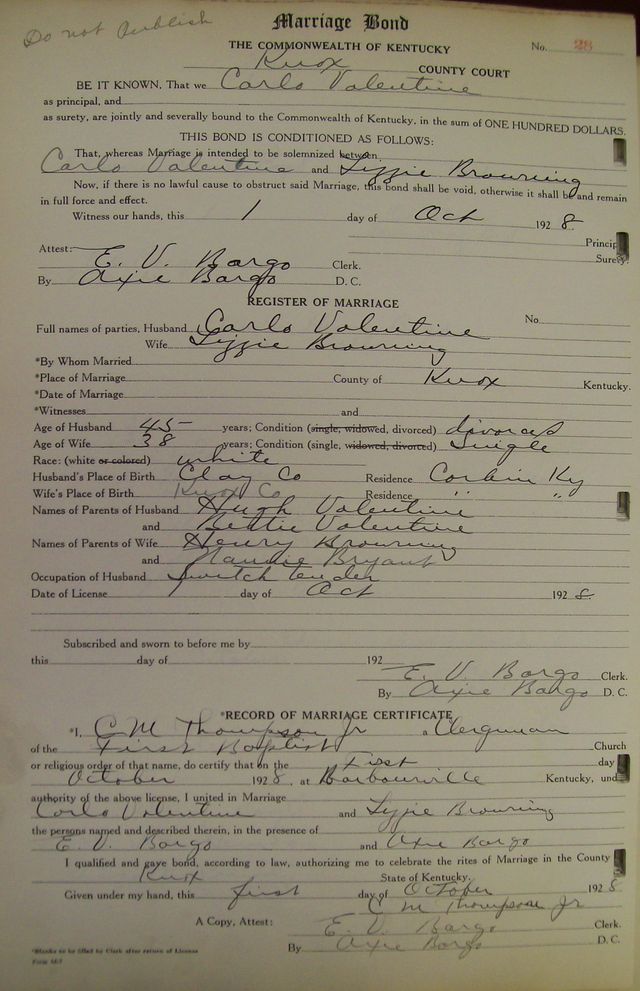 Do not Publish
Marriage Bond
THE COMMONWEALTH OF KENTUCKY No. 28
Knox COUNTY COURT
BE IT KNOWN, That we Carlo Valentine
as principal, and
as surety, are jointly and severally bound to the Commonwealth of Kentucky, in the sum of ONE HUNDRED DOLLARS.
THIS BOND IS CONDITIONED AS FOLLOWS:
That, whereas Marriage is intended to be solemnized between
Carlo Valentine and Lizzie Browning
Now, if there is no lawful cause to obstruct said Marriage, this bond shall be void, otherwise it shall be and remain
in full force and effect.
Witness our hands, this 1 day of Oct 1928.
Princip
Surety.
Attest:
E. V. Bargo Clerk.
By Axie Bargo D. C.
REGISTER OF MARRIAGE
Full names of parties, Husband Carlo Valentine No.
Wife Lizzie Browning
*By Whom Married
*Place of Marriage County of Knox Kentucky.
*Date of Marriage
*Witnesses and
Age of Husband 45 years; Condition (single, widowed, divorced) divorced
Age of Wife 38 years; Condition (single, widowed, divorced) Single
Race: (white or colored) white
Husband's Place of Birth Clay Co Residence Corbin Ky
Wife's Place of Birth Knox Co Residence " "
Names of Parents of Husband Hugh Valentine
and Bettie Valentine
Names of Parents of Wife Henry Browning
and Nannie Bryant
Occupation of Husband Switch tender
Date of License 1 day of Oct 1928.
Subscribed and sworn to before me by
this day of 192
E. V. Bargo Clerk.
By Axie Bargo D. C.
*RECORD OF MARRIAGE CERTIFICATE
*I, C M Thompson Jr a Clergyman
of the First Baptist Church
or religious order of that name, do certify that on the First day
October 1928, at Barbourville Kentucky, und
authority of the above license, I united in Marriage
Carlo Valentine and Lizzie Browning
the persons named and described therein, in the presence of
E. V. Bargo and Axie Bargo
I qualified and gave bond, according to law, authorizing me to celebrate the rites of Marriage in the County
Knox State of Kentucky.
Given under my hand, this first day of October 1928
C M Thompson Jr
A Copy, Attest: E. V. Bargo Clerk.
By Axie Bargo D. C.
*Blanks to be filled by Clerk after return of License